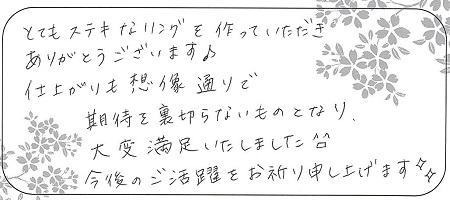 とてもステキなリングを作っていただき
ありがとうございます♪
仕上がりも想像通りで
期待を裏切らないものとなり、
大変満足いたしました^^
今後のご活躍をお祈り申し上げます✧✧